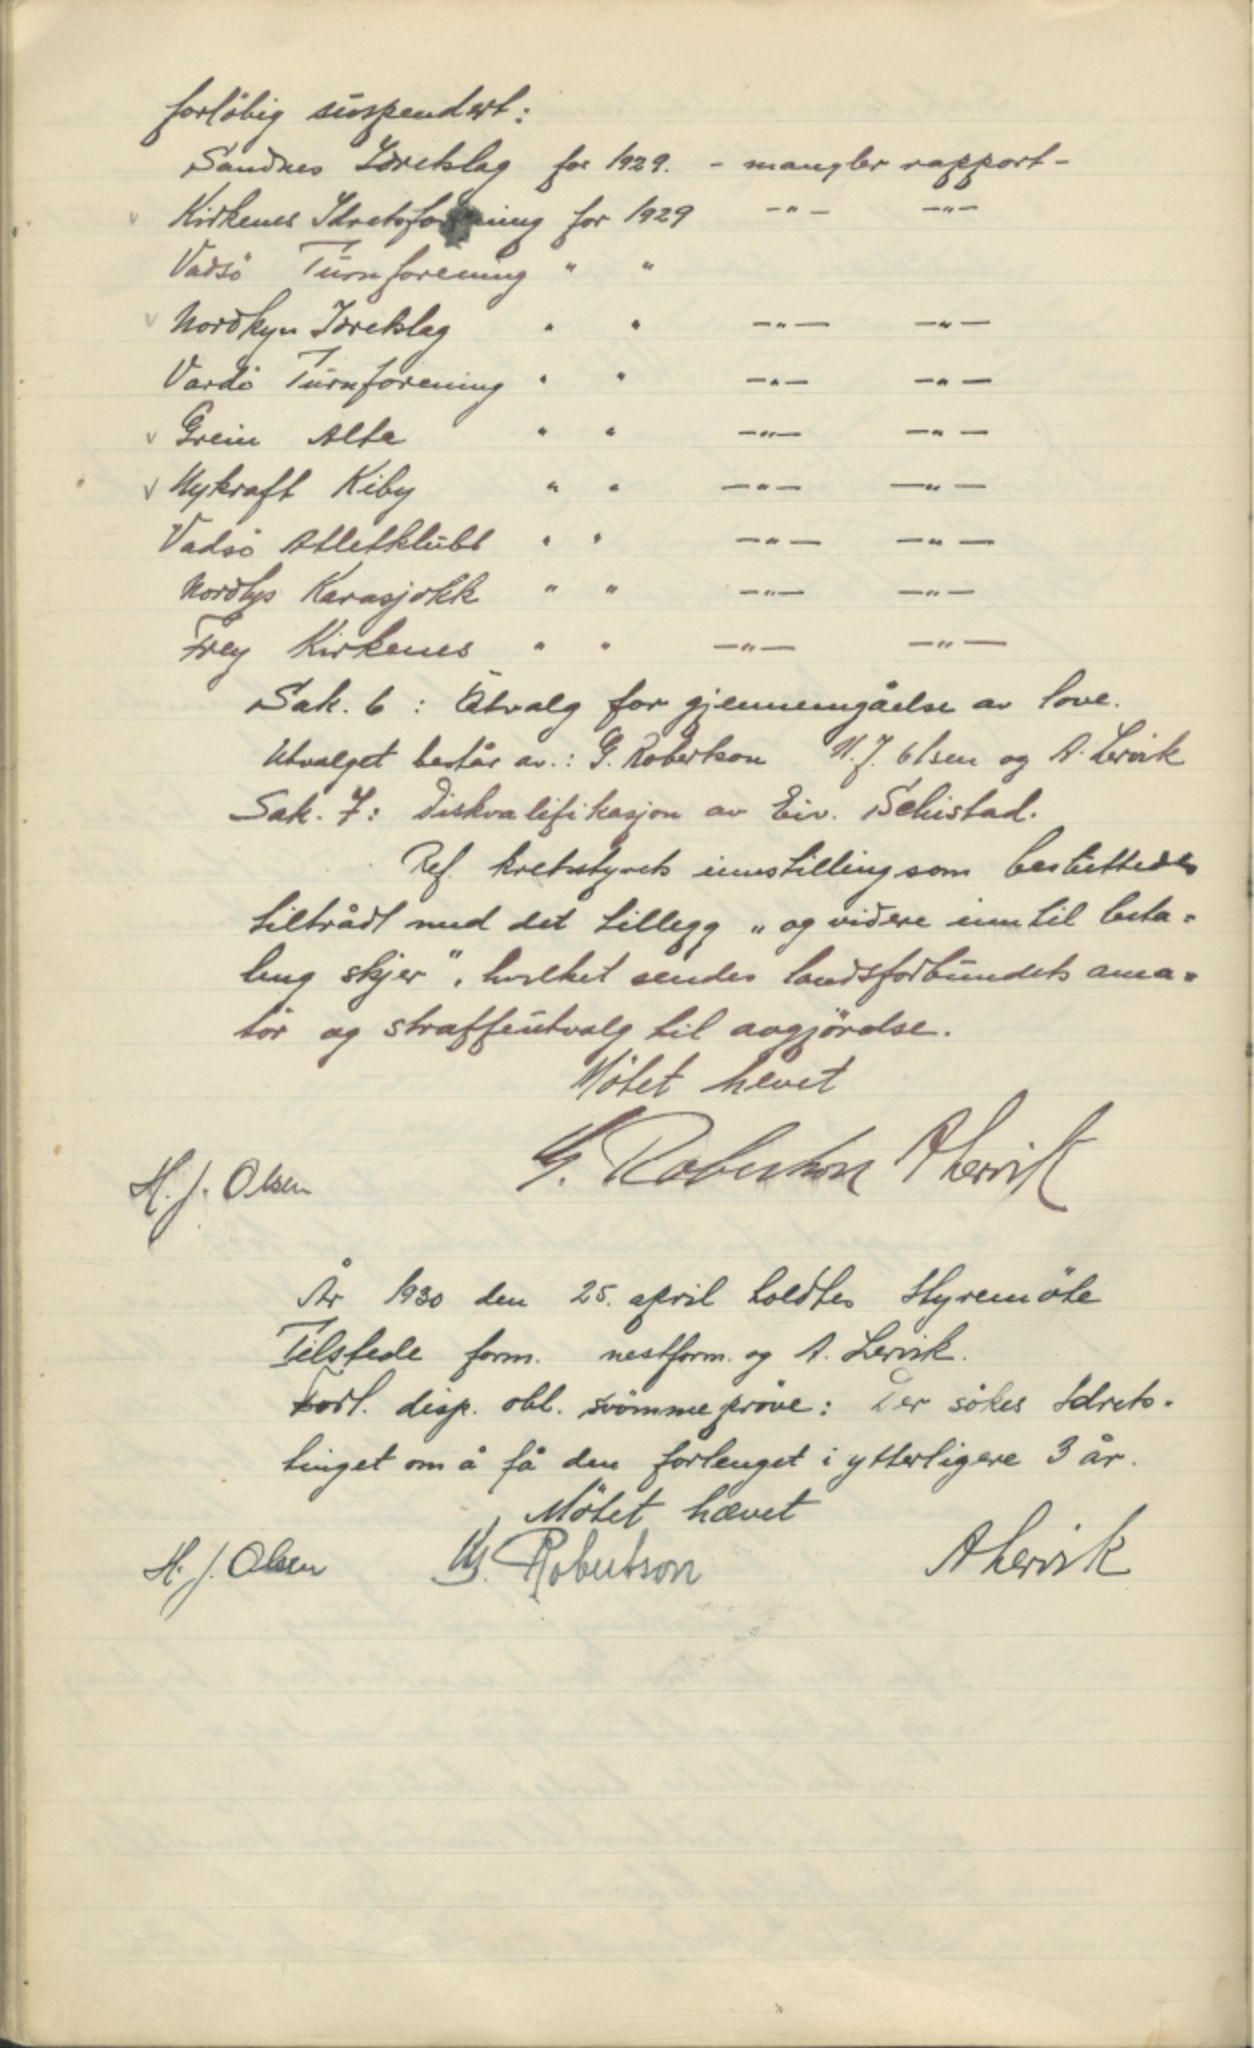 forløbig suspendert:
Sandnes Idretslag for 1929. - mangler rapport -
v Kirkenes Idretsforening for 1929 -"- -"-
Vadsö Turnforening " "
v Nordkyn Idretslag " " -"- -"-
Vardö Turnforening " " -"- -"-
v Grein Alta " " -"- -"-
v Nykraft Kiby " " -"- -"-
Vadsö Atletklubb " " -"- -"-
Nordlys Karasjokk " " -"- -"-
Frey Kirkenes " " -"- -"-
Sak. 6 : Utvalg for gjennemgåelse av love.
Utvalget består av.: G. Robertson H. J. Olsen og A. Lervik
Sak. 7: Diskvalifikasjon av Eiv. Schistad.
Ref. kretsstyrets innstilling som besluttedes
tiltrådt med det tillegg „og videre inntil beta-
ling skjer", hvilket sendes landsforbundets ama-
tör og straffeutvalg til avgjörelse.
Mötet hevet
H. J. Olsen G. Robertson A Lervik
År 1930 den 25. april holdtes Styremöte
Tilstede form. nestform. og A. Lervik.
Forl. disp. obl. svömmepröve: Der sökes Idrets-
tinget om å få den forlenget i ytterligere 3 år.
Mötet hævet
H. J. Olsen G. Robertson A Lervik